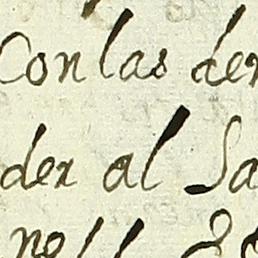 Con las der
der al Sa